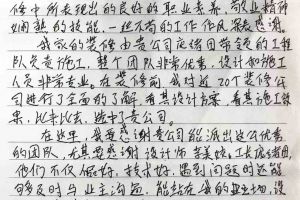 修中所表现出的良好的职业素养、敬业精神
娴熟的技能、一丝不苟的工作作风深表感谢。
我家的装修由贵公司庞绪田带领的工程
队负责施工，整个团队非常优秀，设计和施工
人员非常专业。在装修前我对近20个装修公
司进行了全面的了解，看其设计方案，看其施工效
果，比来比去，选中了贵公司。
在这里，我要感谢贵公司能派出这个优秀
的团队，尤其要感谢设计师李美姣、工长庞绪田，
他们不仅人很好，技术好，遇到问题时还能
够及时与业主沟通，能站在我的角度上想，设